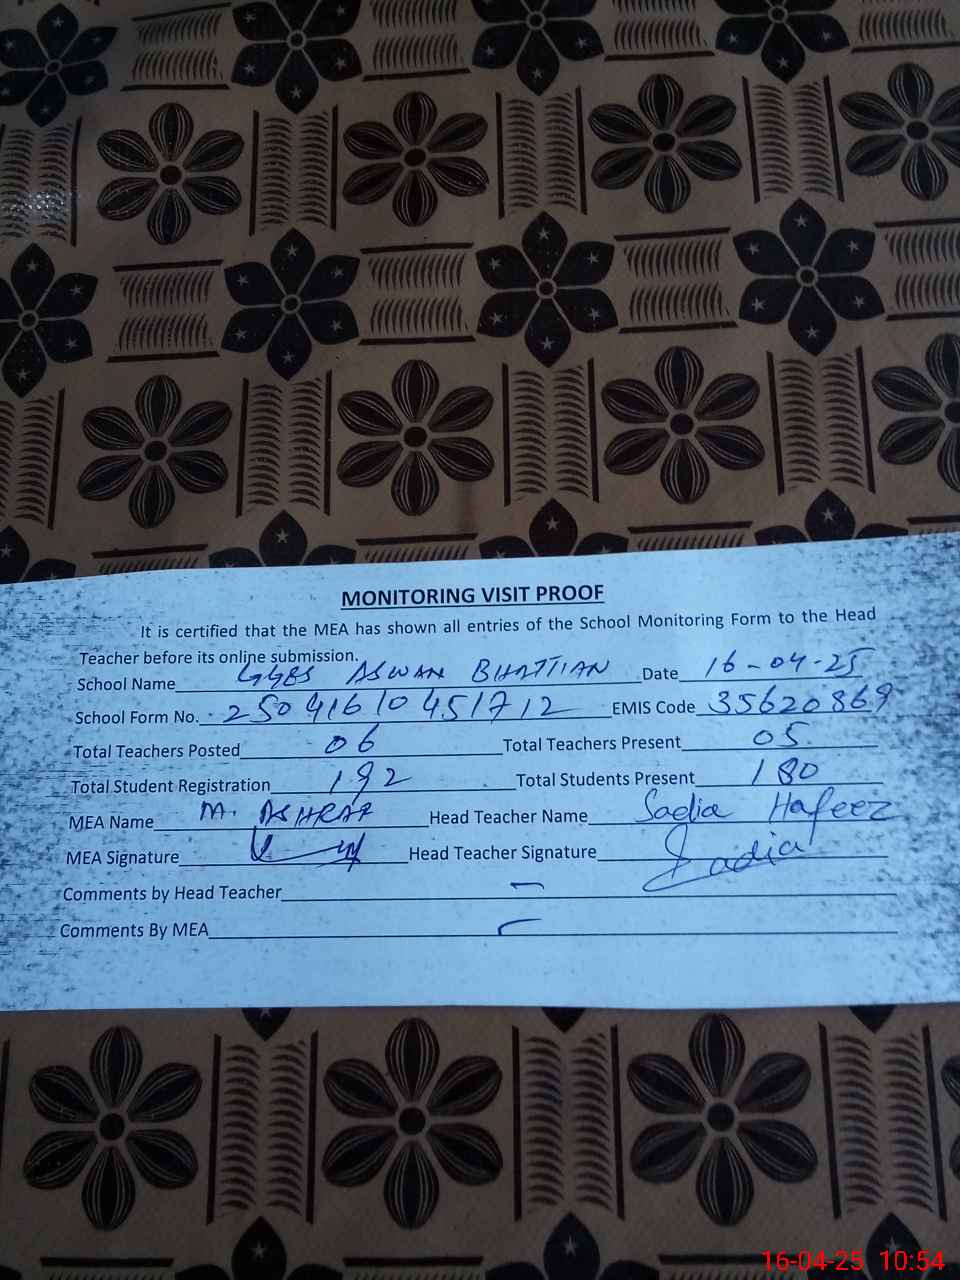 MONITORING VISIT PROOF
It is certified that the MEA has shown all entries of the School Monitoring Form to the Head
Teacher before its online submission.
School Name ASWAN BHATTIAN Date 16-04-25
School Form No. 25041610451712 EMIS Code 35620869
Total Teachers Posted 06 Total Teachers Present 05
Total Student Registration 192 Total Students Present 180
MEA Name M. ASHRAF Head Teacher Name Sadia Hafeez
MEA Signature Head Teacher Signature Sadia
Comments by Head Teacher —
Comments By MEA —
16-04-25 10:54